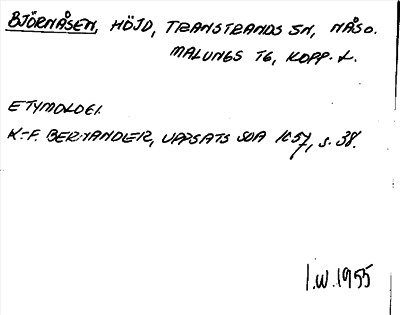 BJÖRNÅSEN, HÖJD, TRANSTRANDS SN, NÅSO.
MALUNGS TG, KOPP. L.
ETYMOLOGI.
K.-F. BERNANDER, UPPSATS SOA 1657, s. 38.
I.W. 1955